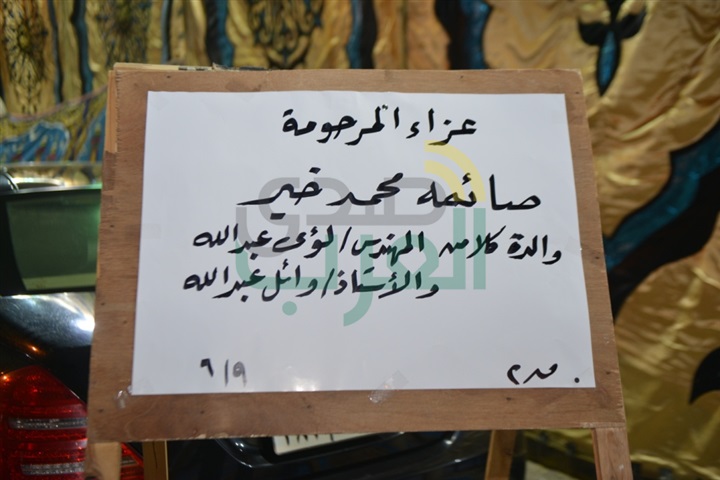 عزاء المرحومة
صائمه محمد خير
والدة كلا من المهندس/لؤى عبدالله
والأستاذ/وائل عبدالله
٦/٩
صدى العرب